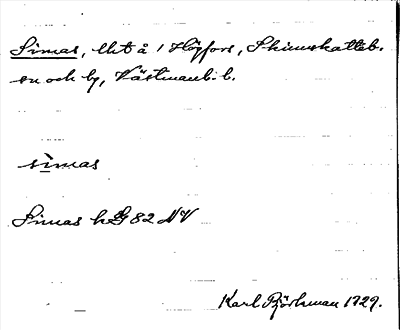 Simas, lht å / Högfors, Skinnskatteb.
sn och by, Västmanl:s l.
sìmas
Simas hG 82 NV
Karl Björkman 1929.